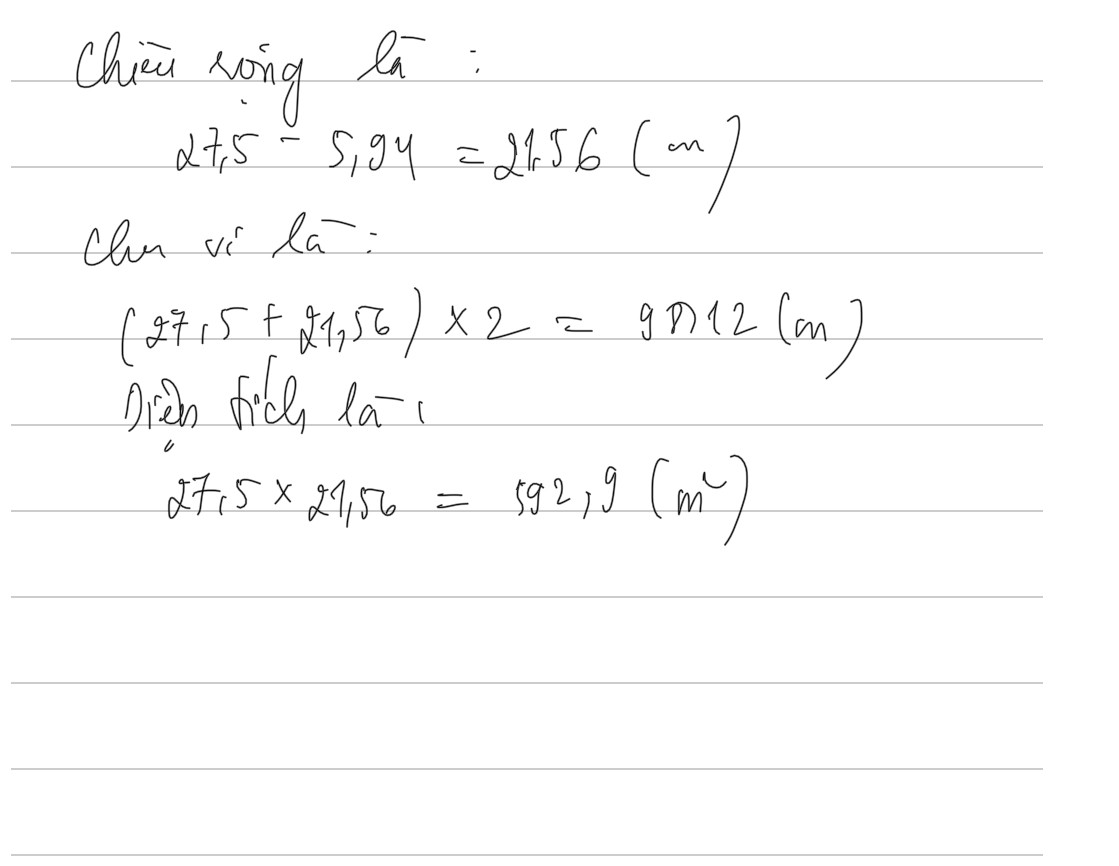 Chiều rộng là :
27,5 - 5,94 = 21,56 (m)
Chu vi là :
(27,5 + 21,56) × 2 = 98,12 (m)
Diện tích là :
27,5 × 21,56 = 592,9 (m²)